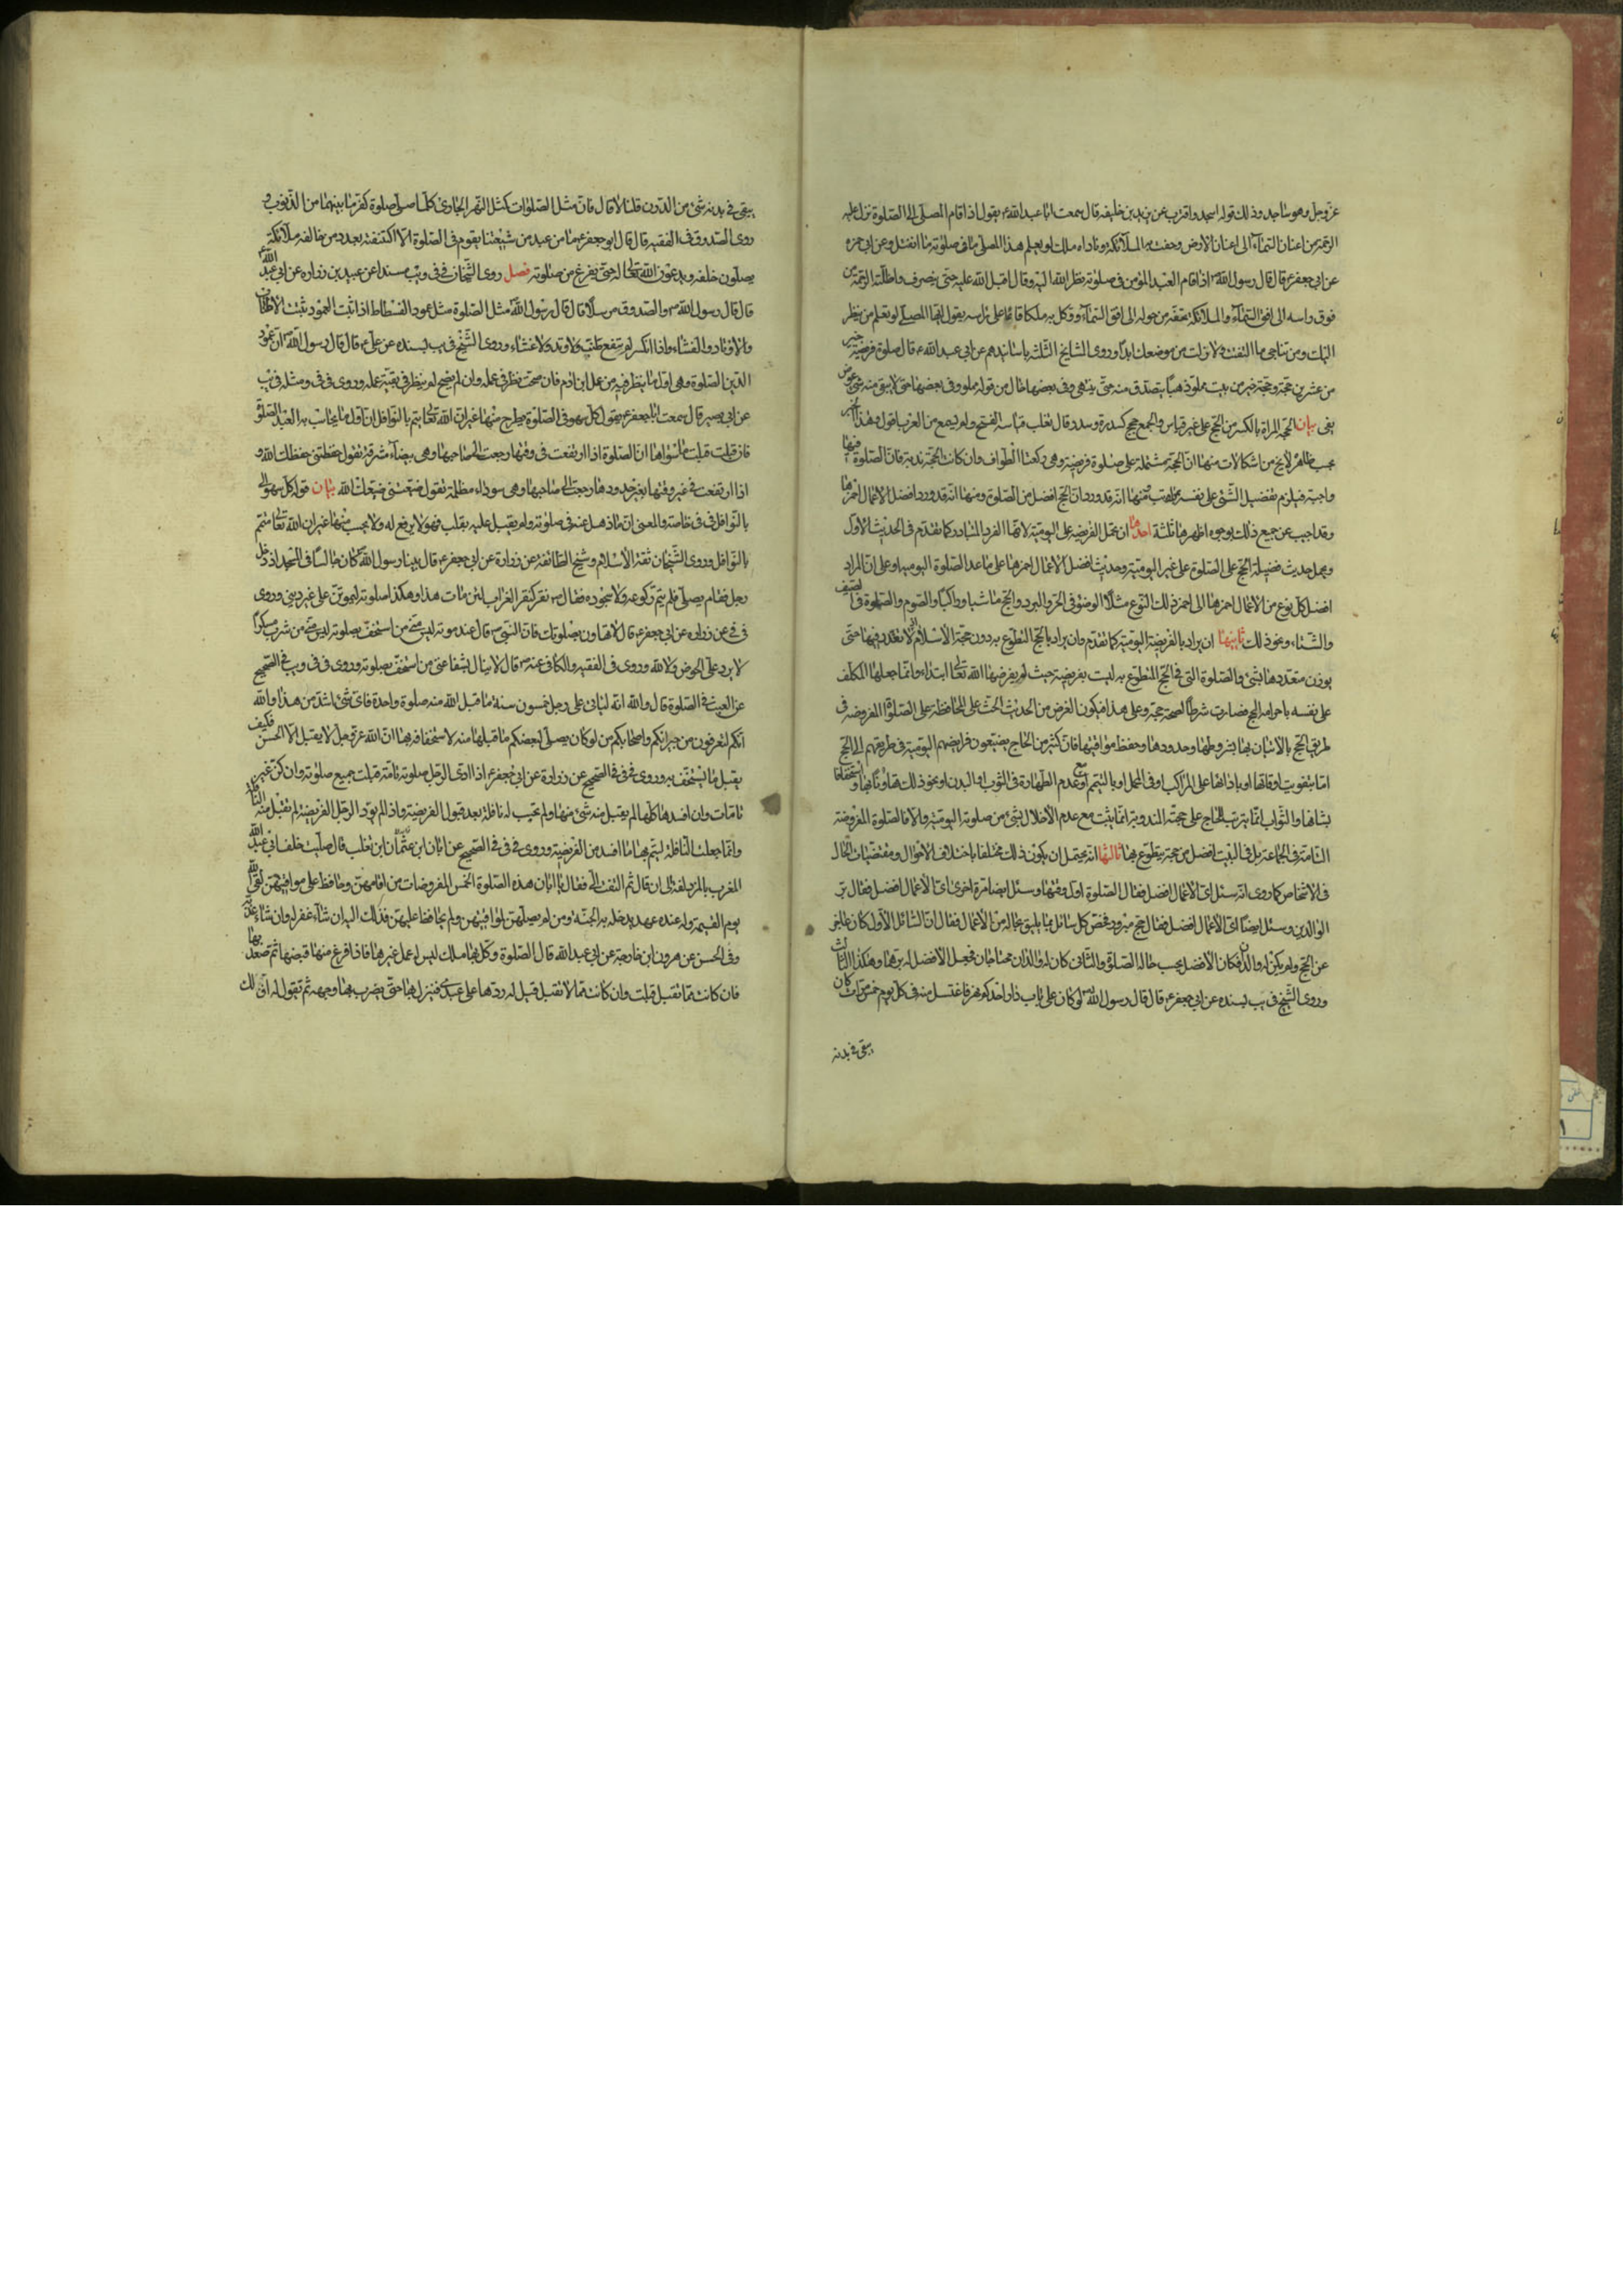 عزوجل وهو ساجد وذلك قوله اسجد واقترب عن يزيد بن خليفه قال سمعت ابا عبد الله ع يقول اذا قام المصلى الى الصلوة نزلت عليه
الرحمة من اعنان السمآء الى اعنان الارض وحفت به الملآئكة وناداه ملك لو يعلم هذا المصلى ما فى صلوته ما انفتل وعن ابى حمزه
عن ابى جعفر ع قال قال رسول الله ص اذا قام العبد المؤمن فى صلوته نظر الله اليه وقال اقبل الله عليه حتى ينصرف واظلته الرحمة من
فوق راسه الى افق السمآء والملآئكة تحفه من حوله الى افق السمآء ووكل به ملكا قائما على راسه يقول ايها المصلى لو تعلم من ينظر
اليك ومن تناجى ما التفت ولا زلت من موضعك ابدًا وروى المشايخ الثلثة باسانيدهم عن ابى عبد الله ع قال صلوة فريضة خير
من عشرين حجة وحجة خير من بيت مملو ذهبا يتصدق منه حتى ينفى وفى بعضها خال من قوله مملو وفى بعضها حتى لا يبقى منه شئ
بيان الحجة المراة بالكسر من الحج على غير قياس والجمع حجج كسدرة وسدر قال ثعلب قياسه الفتح ولم يسمع من العرب اقول وهذا الخبر
بحسب ظاهره لا يخ من اشكالات منها ان الحجة مشتملة على صلوة فريضة وهى ركعتا الطواف وان كانت الحجة ندبية فان الصلوة فيها
واجبة فيلزم تفضيل الشئ على نفسه بمراتب ومنها انه قد ورد ان الحج افضل من الصلوة ومنها انه قد ورد افضل الاعمال احمزها
وقد اجيب عن جميع ذلك بوجوه اظهرها ثلثة احدها ان تحمل الفريضة على اليومية لانها الفرد المتبادر كما تقدم فى الحديث الاول
ويحمل حديث فضيلة الحج على الصلوة على غير اليومية وحديث افضل الاعمال احمزها على ما عدا الصلوة اليومية او على ان المراد
افضل كل نوع من الاعمال احمز ذلك النوع مثلا الوضوء فى الحر والبرد والحج ماشيا وراكبا والصوم والصلوة فى الصيف
والشتاء ونحو ذلك ثانيها ان يراد بالفريضة اليومية كما تقدم وان يراد بالحج المتطوع به دون حجة الاسلام
يوزن متعددها بشئ والصلوة التى فى الحج المتطوع به ليست بفريضة حيث لم يفرضها الله تعالى ابتداء وانما جعلها المكلف
على نفسه باحرامه للحج فصارت شرطا لصحة حجه وعلى هذا فيكون الغرض من الحديث الحث على المحافظة على الصلوة المفروضة فى
طريق الحج بالاتيان بها بشروطها وحدودها وحفظ مواقيتها فان كثير من الحاج يضيعون فرايضهم اليومية فى طريقهم الى الحج
اما بتفويت اوقاتها او باداتها على المراكب او فى المحمل او بالتيمم او مع عدم الطهارة فى الثوب او البدن او نحو ذلك تهاونا بها واستخفافا
بشانها والثواب انما يترتب للحاج على حجته المندوبة انما يثبت مع عدم الاخلال بشئ من صلوته اليومية والا فالصلوة المفروضة
التامة فى الجماعة بل فى البيت افضل من حجة يتطوع بها ثالثها انه يحتمل ان يكون ذلك مختلفا باختلاف الاحوال ومقتضيات الحال
فى الاشخاص كما روى انه سئل اى الاعمال افضل فقال الصلوة اول وقتها وسئل ايضا مرة اخرى اى الاعمال افضل فقال بر
الوالدين وسئل ايضا اى الاعمال افضل فقال حج مبرور فخص كل سائل بما يليق بحاله من الاعمال فقال ان السائل الاول كان عاجز
عن الحج ولم يكن له والدان فكان الافضل بحسب حاله الصلوة والثانى كان له والدان محتاجان فجعل الافضل له برهما وهكذا الثالث
وروى الشيخ فى يب بسنده عن ابى جعفر ع قال قال رسول الله ص لو كان على باب دار احدكم نهر فاغتسل منه فى كل يوم خمس مرات كان
يبقى فى بدنه
يبقى فى بدنه شئ من الدرن قلنا لا قال فان مثل الصلوات كمثل النهر الجارى كلما صلى صلوة كفرت ما بينهما من الذنوب و
روى الصدوق فى الفقيه قال قال ابو جعفر ع ما من عبد من شيعتنا يقوم فى الصلوة الا اكتنفته بعدد من خالفه ملآئكة
يصلون خلفه ويدعون الله تعالى له حتى يفرغ من صلوته فصل روى الشيخان فى فى ويب مسندا عن عبيد بن زراره عن ابى عبد الله ع
قال قال رسول الله ص والصدوق مرسلا قال قال رسول الله ص مثل الصلوة مثل عمود الفسطاط اذا ثبت العمود ثبتت الاطناب
والاوتاد والغشاء واذا انكسر لم ينفع طنب ولا وتد ولا غشاء وروى الشيخ فى يب بسنده عن على ع قال قال رسول الله ص ان عمود
الدين الصلوة وهى اول ما ينظر فيه من عمل ابن ادم فان صحت نظر فى عمله وان لم تصح لم ينظر فى بقية عمله وروى فى فى ومثله فى يب
عن ابى بصير قال سمعت ابا جعفر ع يقول كل سهو فى الصلوة يطرح منها غير ان الله تعالى يتم بالنوافل ان اول ما يحاسب به العبد الصلوة
فان قبلت قبل ما سواها ان الصلوة اذا ارتفعت فى وقتها رجعت الى صاحبها وهى بيضآء مشرقة تقول حفظتنى حفظك الله و
اذا ارتفعت فى غير وقتها بغير حدودها رجعت الى صاحبها وهى سوداء مظلمة تقول ضيعتنى ضيعك الله بيان قوله كل سهو الى
بالنوافل فى فى خاصته والمعنى ان ما ذهل عنه فى صلوته ولم يقبل عليه بقلب فهو لا يرفع له ولا يحسب منها غير ان الله تعالى متمم
بالنوافل وروى الشيخان ثقة الاسلام وشيخ الطائفة عن زرارة عن ابى جعفر ع قال بينا رسول الله ص كان جالسا فى المسجد اذ دخل
رجل فقام يصلى فلم يتم ركوعه ولا سجوده فقال ص نقر كنقر الغراب لئن مات هذا وهكذا صلوته ليموتن على غير دينى وروى
عن زرارة عن ابى جعفر ع قال لا تتهاون بصلوتك فان النبى ص قال عند موته ليس منى من استخف بصلوته ليس منى من شرب مسكرا
لا يرد على الحوض لا والله وروى فى الفقيه والكافى عنه ص قال لا ينال شفاعتى من استخف بصلوته وروى فى فى ويب فى الصحيح
عن العيص فى الصلوة قال والله انه ليأتى على رجل خمسون سنة ما قبل الله منه صلوة واحدة فاى شئ اشد من هذا والله
انكم لتعرفون من جيرانكم واصحابكم من لو كان يصلى لبعضكم ما قبلها منه لاستخفافه بها ان الله عز وجل لا يقبل الا الحسن فكيف
يقبل ما يستخف به وروى فى فى فى الصحيح عن زرارة عن ابى جعفر ع اذا ادى الرجل صلوته تامة قبلت جميع صلوته وان كن غير
تامات وان افسدها كلها لم يقبل منه شئ منها ولم تحسب له نافلة بعد قبول الفريضة واذا لم يود الرجل الفريضة لم تقبل منه النافلة
وانما جعلت النافلة ليتم بها ما افسد من الفريضة وروى فى فى فى الصحيح عن ابان بن تغلب قال صليت خلف ابى عبد الله
المغرب بالمزدلفة الى ان قال ثم التفت الى فقال يا ابان هذه الصلوة الخمس المفروضات من اقامهن وحافظ على مواقيتهن لقى الله
يوم القيمة وله عنده عهد يدخله به الجنة ومن لم يصلهن لمواقيتهن ولم يحافظ عليهن فذلك اليه ان شآء غفر له وان شآء عذبه
وفى الحسن عن هرون ابن خارجة عن ابى عبد الله قال الصلوة وكل بها ملك ليس له عمل غيرها فاذا فرغ منها قبضها ثم صعد بها
فان كانت مما تقبل قبلت وان كانت مما لا تقبل قيل له ردها على عبدى فينزل بها حتى يضرب بها وجهه ثم تقول له اف لك